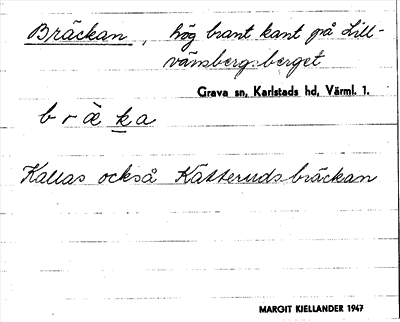 Bräckan, hög brant kant på Lill-
vänsbergsberget
Grava sn, Karlstads hd, Värml. l.
b r æ̀ k a
Kallas också Kätterudsbräckan
MARGIT KJELLANDER 1947